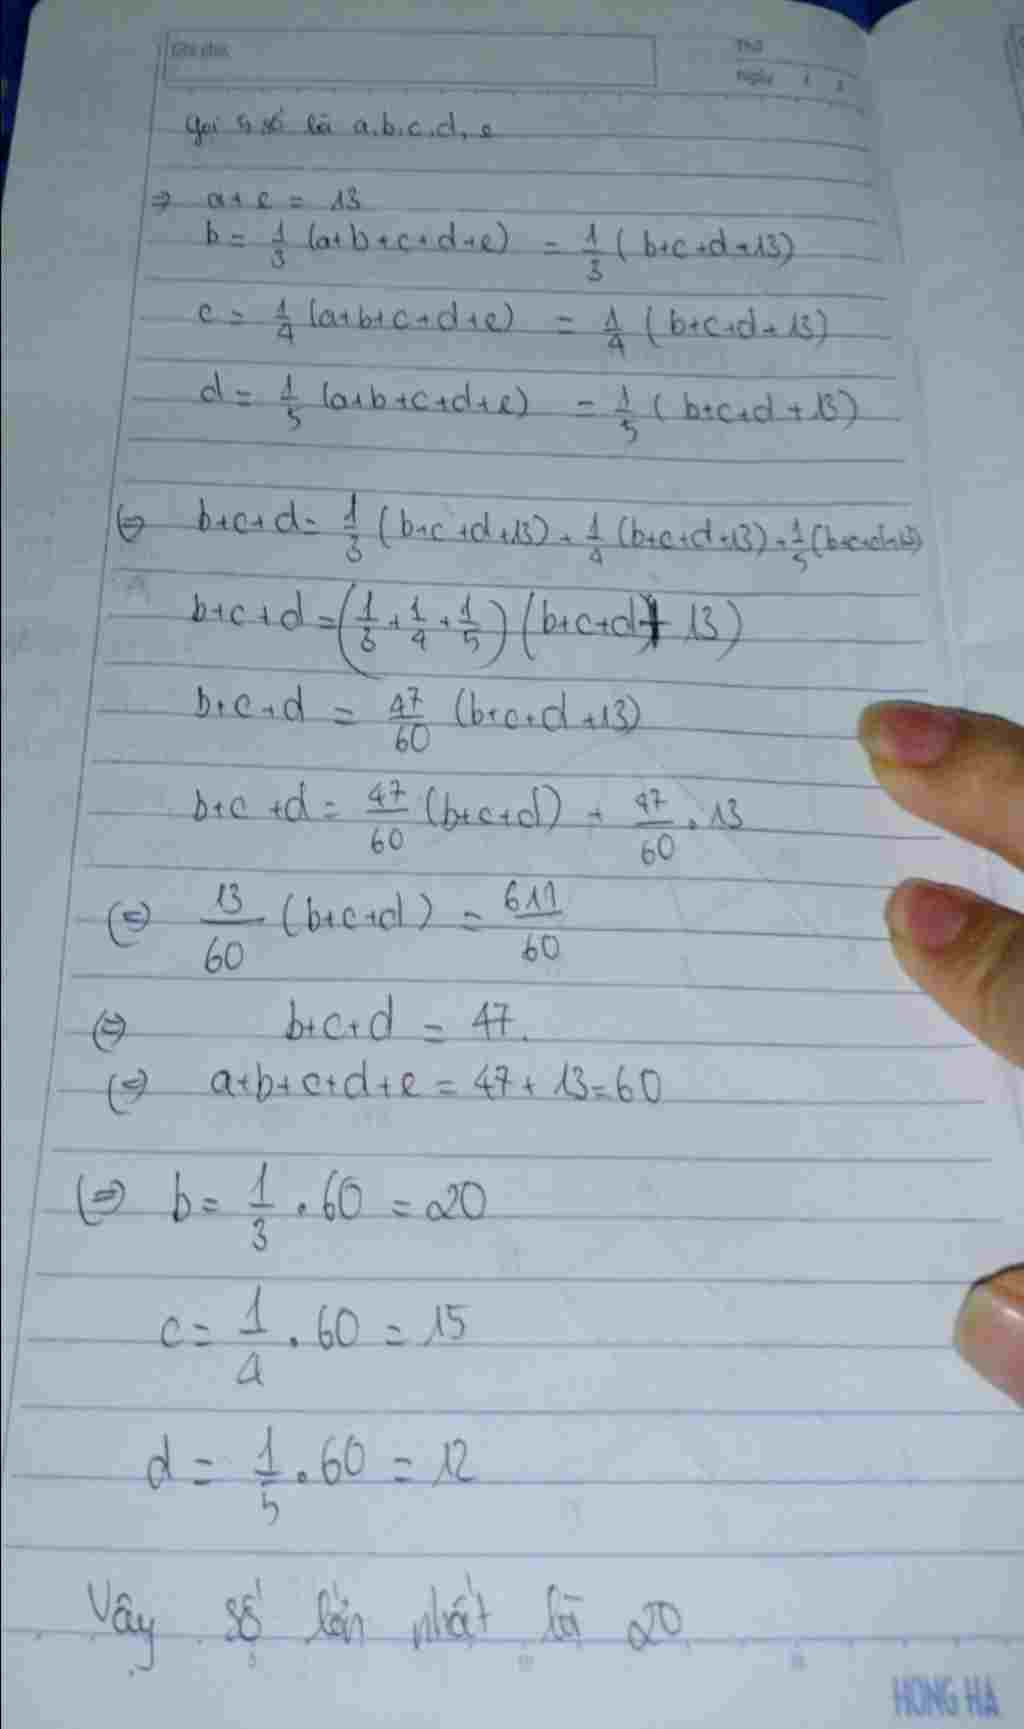 Ghi chú:
Thứ
Ngày / /
Gọi 5 số là a,b,c,d,e
=> a+e = 13
b = 1/3 (a+b+c+d+e) = 1/3 (b+c+d+13)
c = 1/4 (a+b+c+d+e) = 1/4 (b+c+d+13)
d = 1/5 (a+b+c+d+e) = 1/5 (b+c+d+13)
(=) b+c+d = 1/3 (b+c+d+13) + 1/4 (b+c+d+13) + 1/5 (b+c+d+13)
b+c+d = (1/3 + 1/4 + 1/5) (b+c+d + 13)
b+c+d = 47/60 (b+c+d+13)
b+c+d = 47/60 (b+c+d) + 47/60 . 13
(=) 13/60 (b+c+d) = 611/60
(=) b+c+d = 47.
(=) a+b+c+d+e = 47+13=60
(=) b = 1/3 . 60 = 20
c = 1/4 . 60 = 15
d = 1/5 . 60 = 12
Vậy số lớn nhất là 20
HONG HA